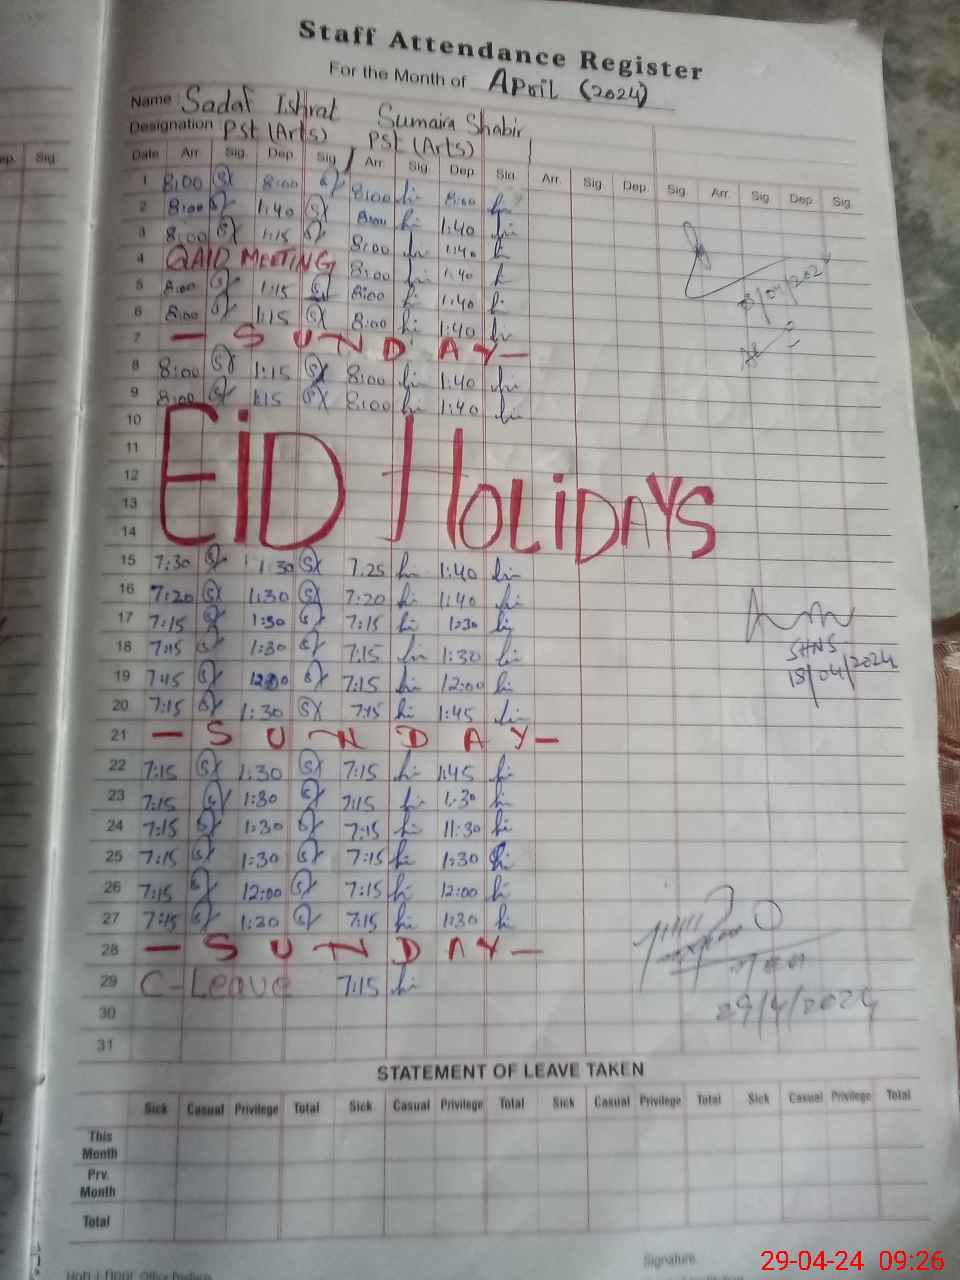 Staff Attendance Register
For the Month of April (2024)
Name Sadaf Ishrat Sumaira Shabir
Designation Pst (Arts) Pst (Arts)
ep. Sig. Date Arr. Sig. Dep. Sig. Arr. Sig Dep. Sig. Arr. Sig. Dep. Sig. Arr. Sig. Dep. Sig.
1 8:00 8:00 8:00 8:00
2 8:00 1:40 8:00 1:40
3 8:00 1:15 8:00 1:40
4 QAID MEETING 8:00 1:40
5 8:00 1:15 8:00 1:40
6 8:00 1:15 8:00 1:40
7 — SUNDAY —
8 8:00 1:15 8:00 1:40
9 8:00 1:15 8:00 1:40
10
11
12 EID HOLIDAYS
13
14
15 7:30 1:30 7:25 1:40
16 7:20 1:30 7:20 1:40
17 7:15 1:30 7:15 1:30
18 7:15 1:30 7:15 1:30
SHNS
18/04/2024
19 7:15 12:00 7:15 12:00
20 7:15 1:30 7:15 1:45
21 — SUNDAY —
22 7:15 1:30 7:15 1:45
23 7:15 1:30 7:15 1:30
24 7:15 1:30 7:15 11:30
25 7:15 1:30 7:15 1:30
26 7:15 12:00 7:15 12:00
27 7:15 1:30 7:15 1:30
28 — SUNDAY —
29 C-Leave 7:15
29/4/2024
30
31
STATEMENT OF LEAVE TAKEN
Sick Casual Privilege Total Sick Casual Privilege Total Sick Casual Privilege Total Sick Casual Privilege Total
This Month
Prv. Month
Total
Signature
29-04-24 09:26